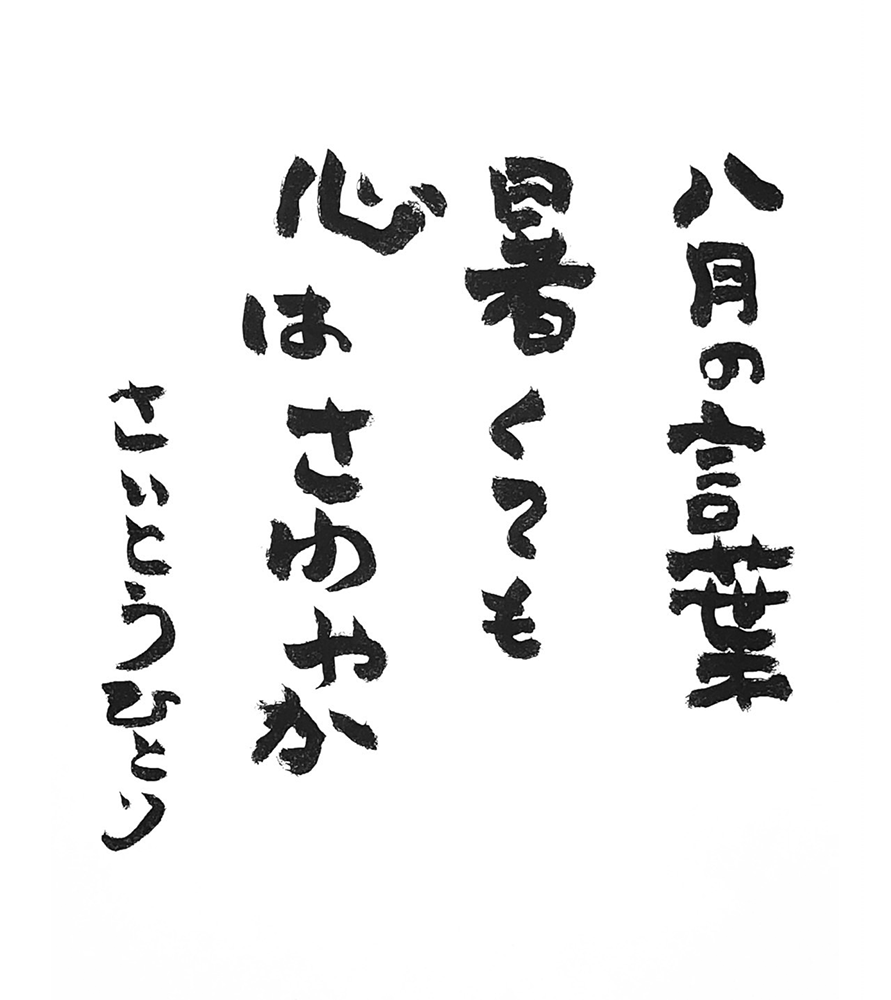 八月の言葉
暑くても
心はさわやか
さいとうひとり